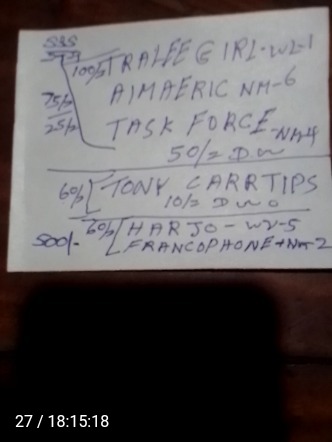 SSS
100/2 TRALEE GIRL-W2-1
75/2 AIMAERIC NM-6
25/2 TASK FORCE-NM-4
50/2 D W
60/2 TONY CARRTIPS
10/2 D W O
60/2 HARJO-W2-5
500/- FRANCOPHONE+NM-2
27 / 18:15:18